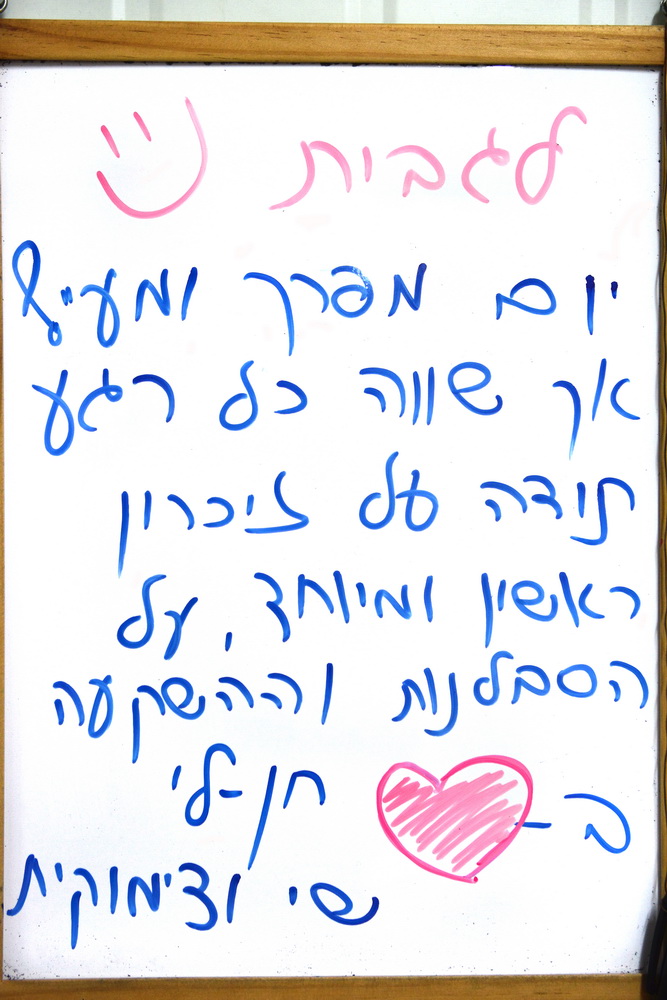 לגבית
יום מפרך ומעייף
אך שווה כל רגע
תודה על זיכרון
ראשון ומיוחד, על
הסבלנות וההשקעה
ב- חן-לי
שי וצימוקית